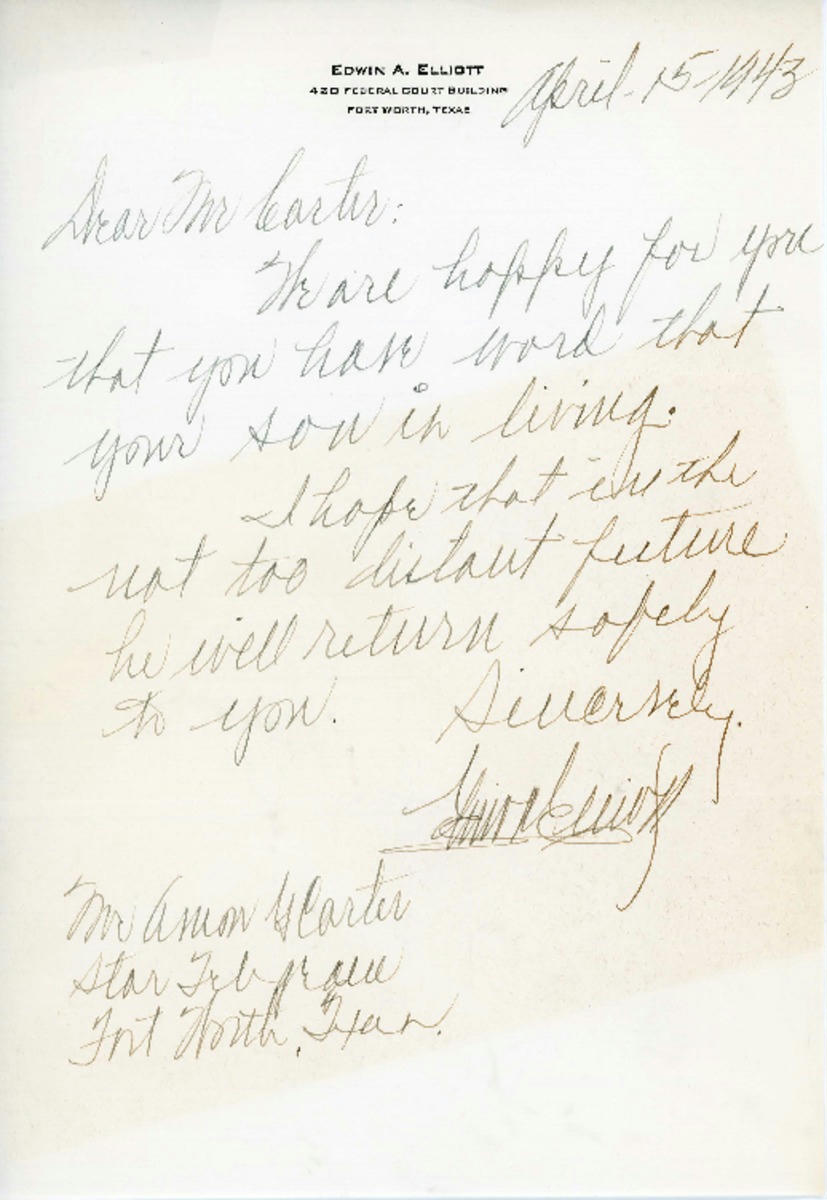 EDWIN A. ELLIOTT
420 FEDERAL COURT BUILDING
FORT WORTH, TEXAS
April-15-1943
Dear Mr Carter:
We are happy for you
that you have word that
your son is living.
I hope that in the
not too distant future
he will return safely
to you.
Sincerely,
Edwin A Elliott
Mr Amon G Carter
Star Telegram
Fort Worth, Texas.